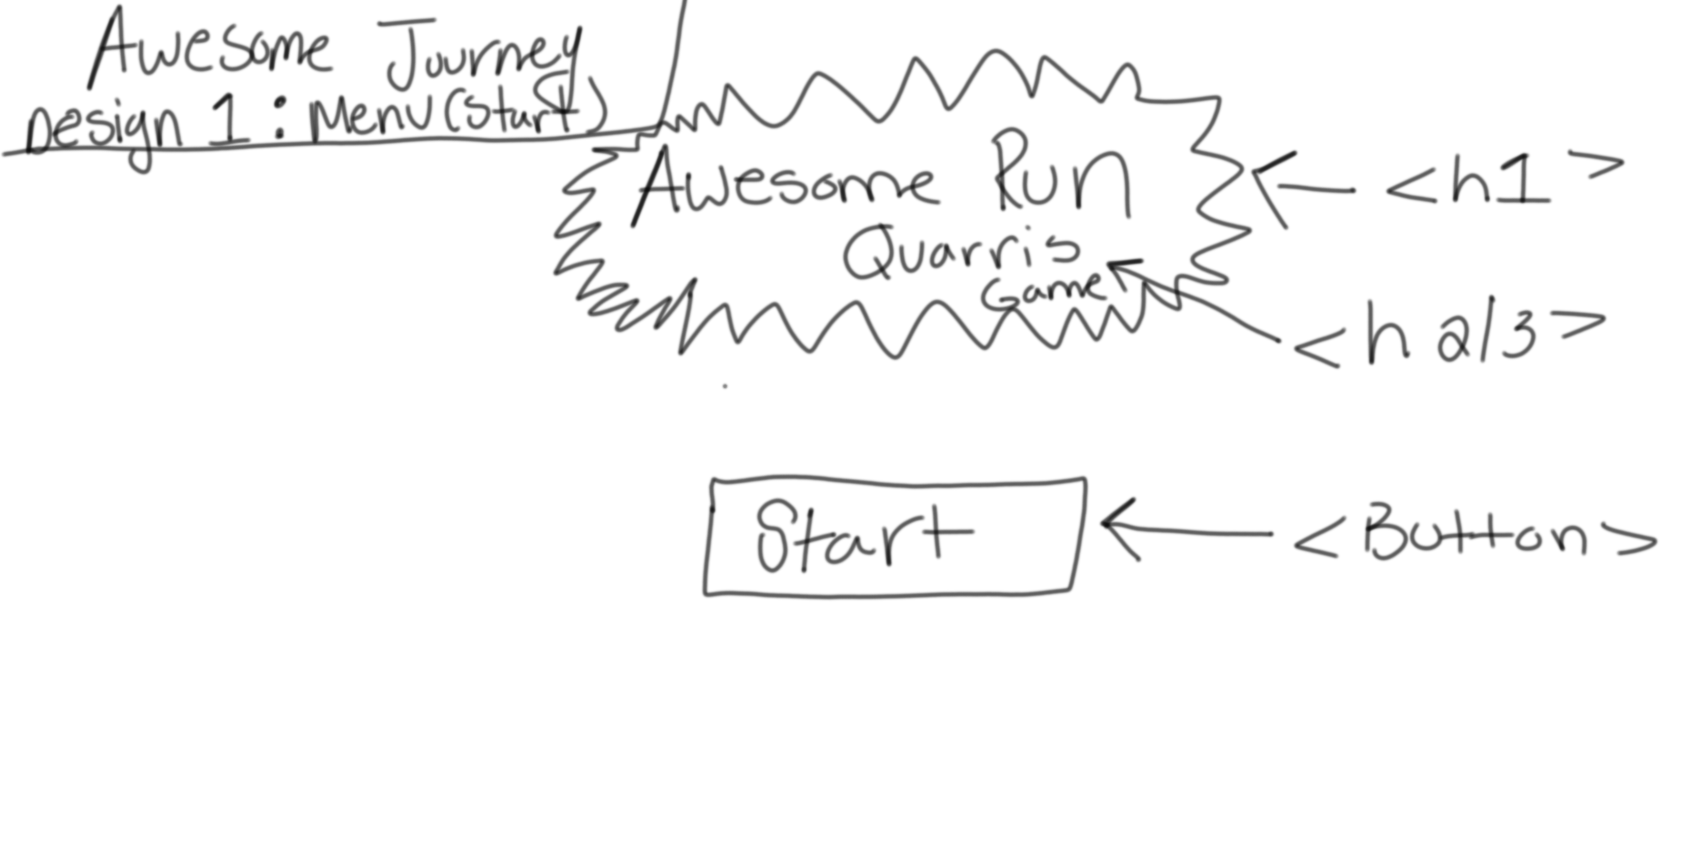 Awesome Journey
Design 1: Menu (start)
Awesome Run
Quarris
Game
<h1>
<h 2/3>
Start
<Button>